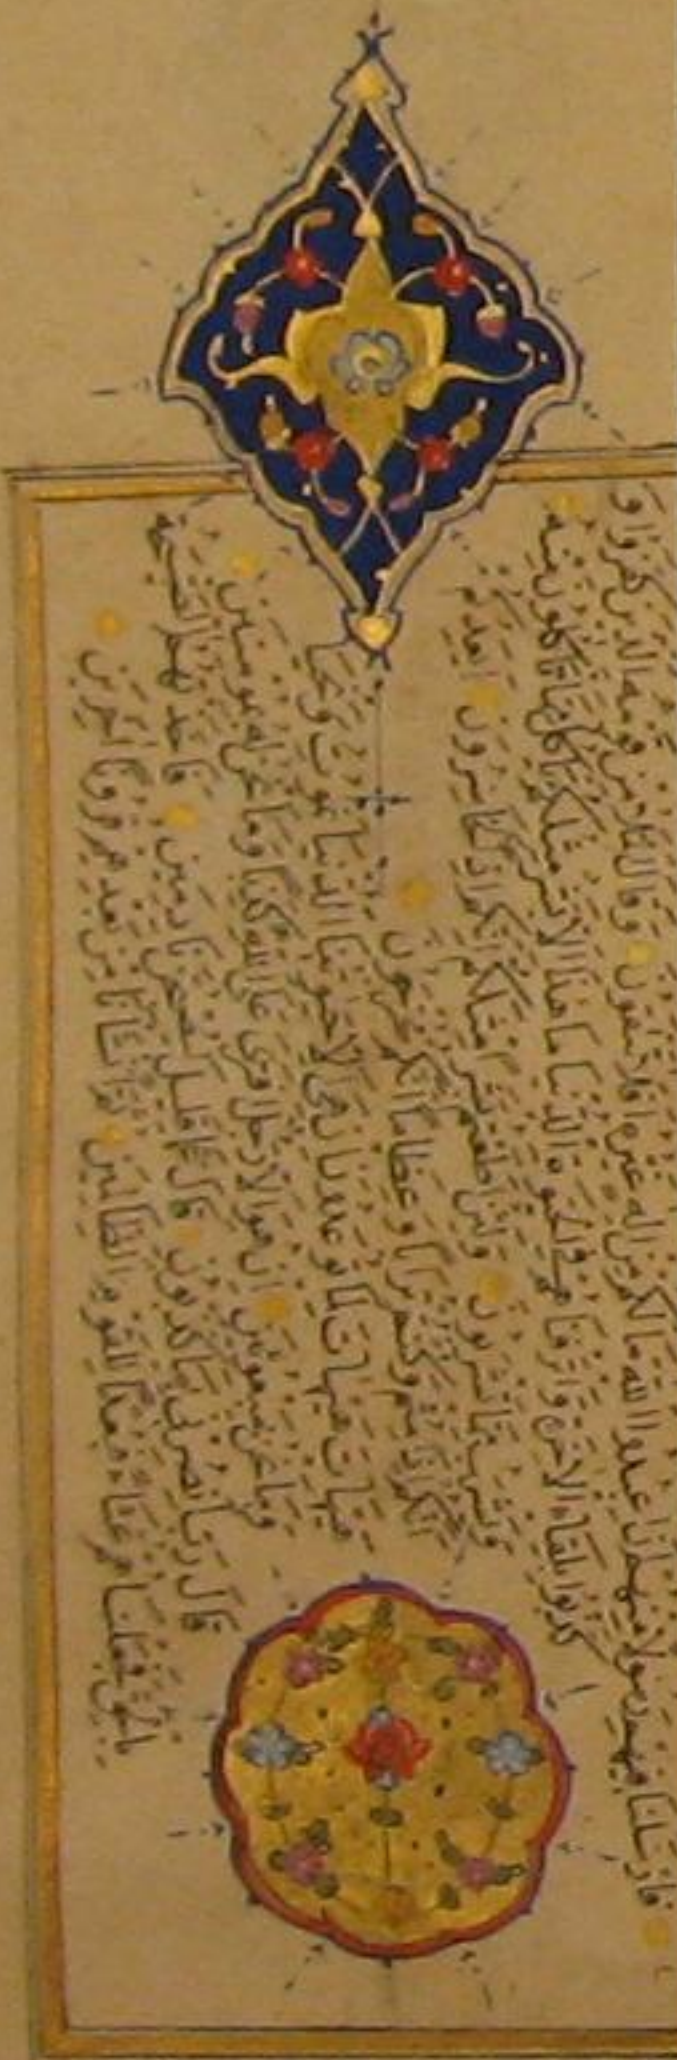 فَأَرْسَلْنَا فِيهِمْ رَسُولًا مِنْهُمْ أَنِ اعْبُدُوا اللَّهَ مَا لَكُمْ مِنْ إِلَهٍ غَيْرُهُ أَفَلَا تَتَّقُونَ وَقَالَ الْمَلَأُ مِنْ قَوْمِهِ الَّذِينَ كَفَرُوا وَ
كَذَّبُوا بِلِقَاءِ الْآخِرَةِ وَأَتْرَفْنَاهُمْ فِي الْحَيَوةِ الدُّنْيَا مَا هَذَا إِلَّا بَشَرٌ مِثْلُكُمْ يَأْكُلُ مِمَّا تَأْكُلُونَ مِنْهُ
وَيَشْرَبُ مِمَّا تَشْرَبُونَ وَلَئِنْ أَطَعْتُمْ بَشَرًا مِثْلَكُمْ إِنَّكُمْ إِذًا لَخَاسِرُونَ أَيَعِدُكُمْ
أَنَّكُمْ إِذَا مِتُّمْ وَكُنْتُمْ تُرَابًا وَعِظَامًا أَنَّكُمْ مُخْرَجُونَ
هَيْهَاتَ هَيْهَاتَ لِمَا تُوعَدُونَ إِنْ هِيَ إِلَّا حَيَاتُنَا الدُّنْيَا نَمُوتُ وَنَحْيَا
وَمَا نَحْنُ بِمَبْعُوثِينَ إِنْ هُوَ إِلَّا رَجُلٌ افْتَرَى عَلَى اللَّهِ كَذِبًا وَمَا نَحْنُ لَهُ بِمُؤْمِنِينَ
قَالَ رَبِّ انْصُرْنِي بِمَا كَذَّبُونِ قَالَ عَمَّا قَلِيلٍ لَيُصْبِحُنَّ نَادِمِينَ فَأَخَذَتْهُمُ الصَّيْحَةُ
بِالْحَقِّ فَجَعَلْنَاهُمْ غُثَاءً فَبُعْدًا لِلْقَوْمِ الظَّالِمِينَ ثُمَّ أَنْشَأْنَا مِنْ بَعْدِهِمْ قُرُونًا آخَرِينَ